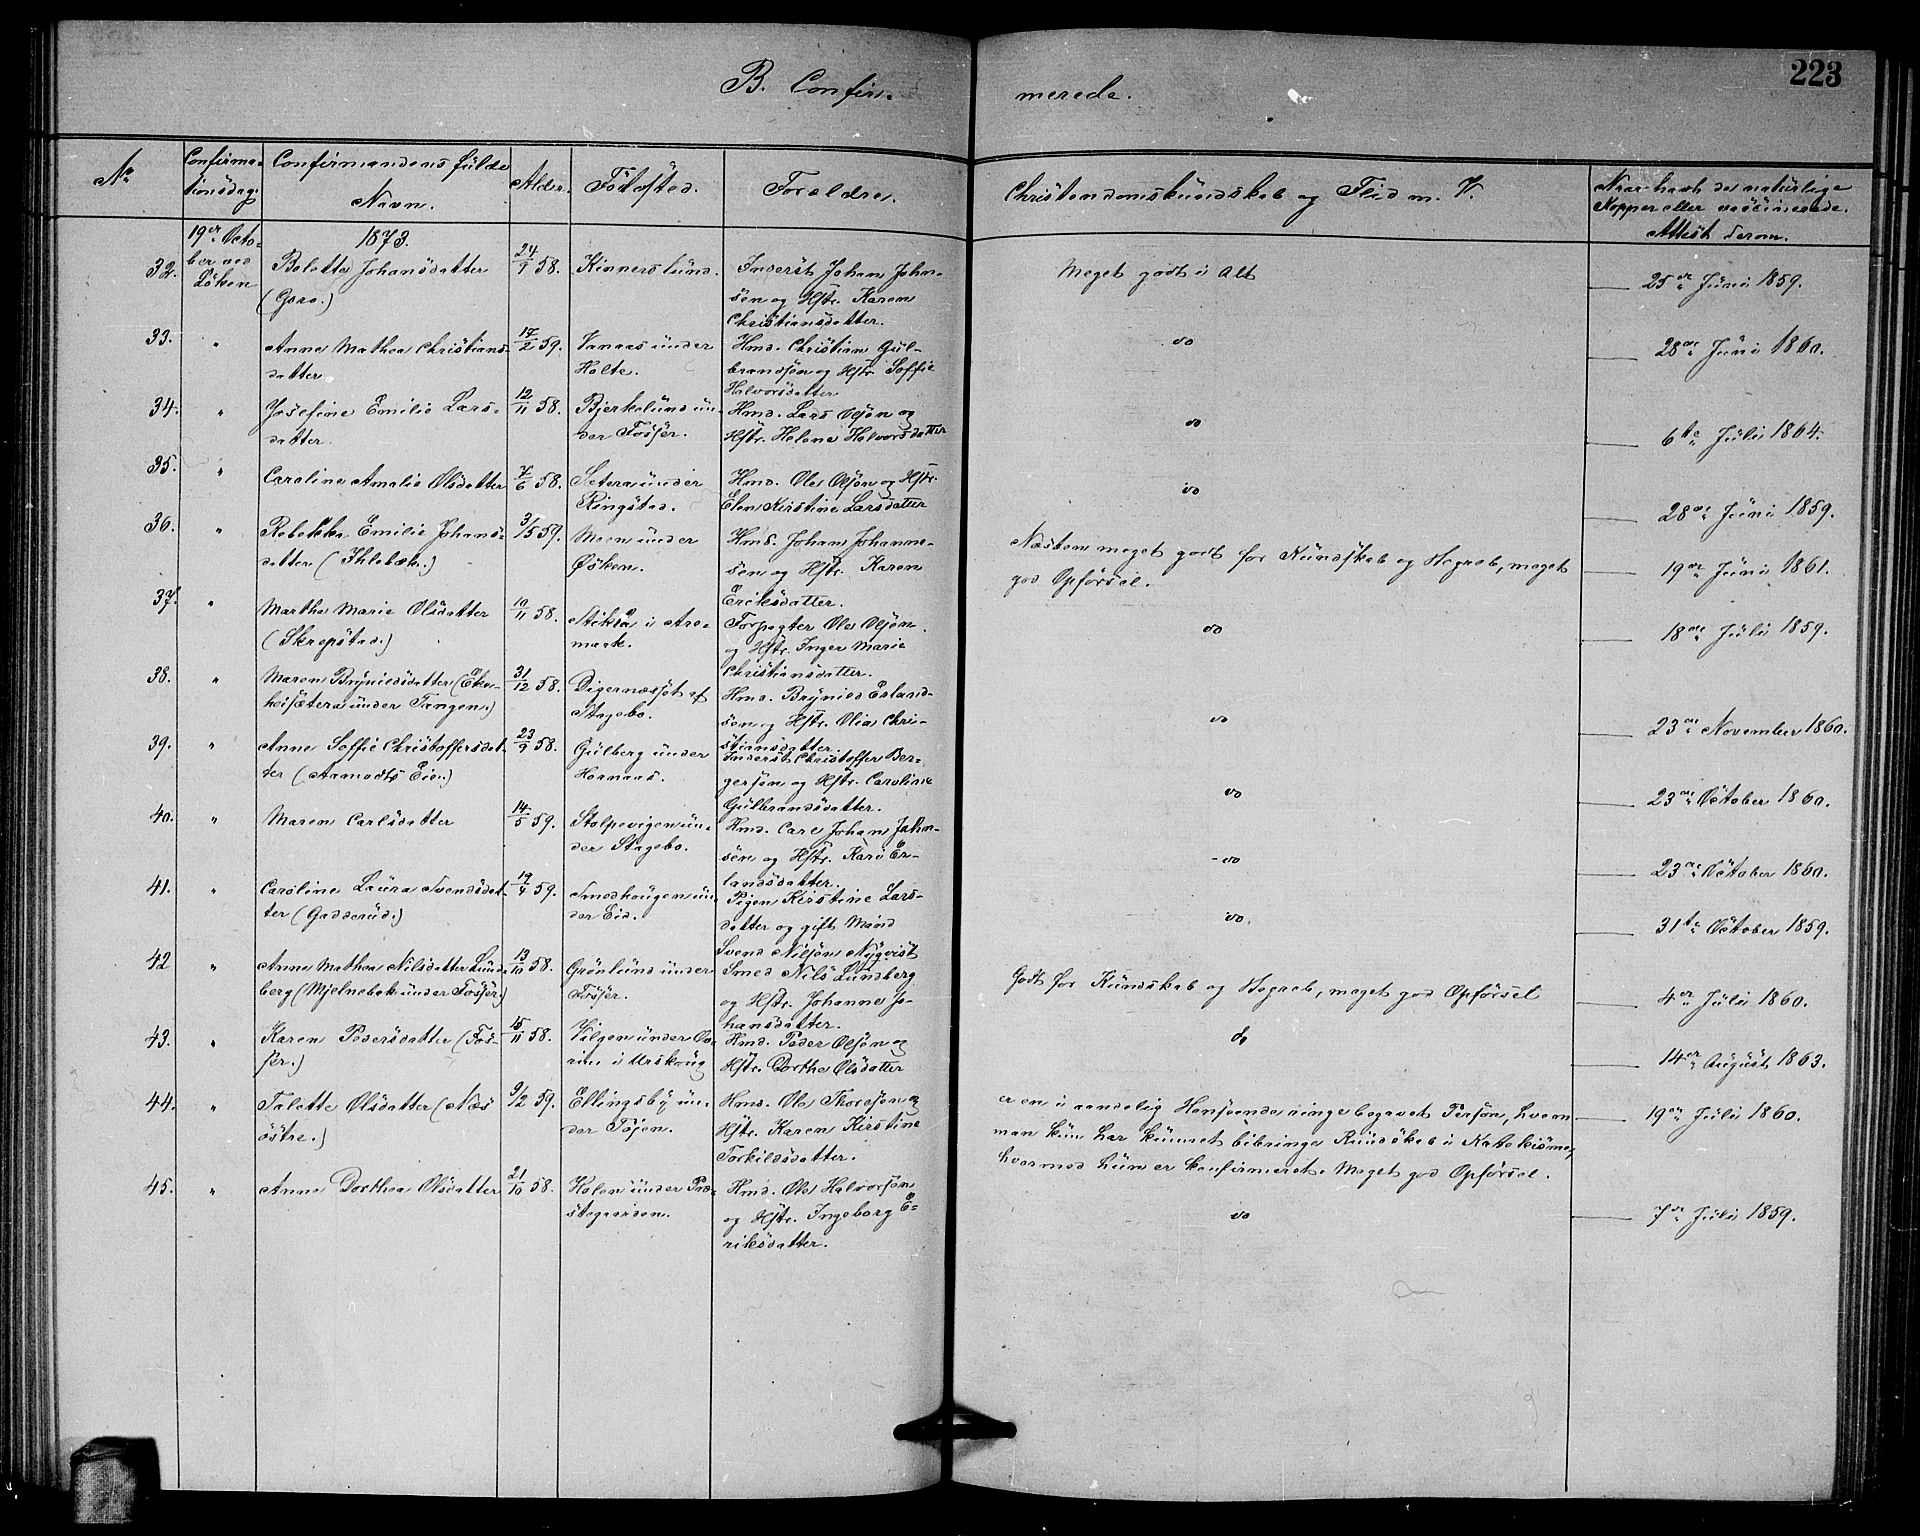 223
B. Confir-
merede.
No
Confirma-
tionsdag.
Confirmandens fulde
Navn.
Alder.
Födested.
Forældre.
Christendomskundskab og Flid m. V.
Naar havt de naturlige
Kopper eller vaccinerede.
Attest derom.
19er Octo-
ber ved
Löken
1873.
32.
Bolette Johansdatter
(Gare.)
24/9 58.
Kinnerslund.
Inderst Johan Johan-
sen og Hstr. Karen
Christiansdatter.
Meget godt i Alt
25de Juni 1859.
33.
"
Anne Mathea Christians-
datter
17/2 59.
Vanaas under
Holte.
Hmd. Christian Gul-
brandsen og Hstr. Soffie
Halvorsdatter
do
28de Juni 1860.
34.
"
Josefine Emilie Lars-
datter.
12/11 58.
Bjerkelund un-
der Fosser.
Hmd. Lars Olsen og
Hstr. Helene Halvorsdatter
do
6te Juli 1864.
35.
"
Caroline Amalie Olsdatter
7/6 58.
Setera under
Ringstad.
Hmd. Ole Olsön og Hstr.
Elen Kirstine Larsdatter
do
28de Juni 1859.
36.
"
Rebekka Emilie Johans-
datter (Ihlebæk.)
3/5 59.
Moen under
Øsken.
Hmd. Johan Johanne-
sen og Hstr. Karen
Eriksdatter.
Næsten meget godt for Kundskab og Begreb, meget
god Opförsel.
19de Juni 1861.
37.
"
Martha Marie Olsdatter
(Skrepstad.)
10/11 58.
Stiksa i Are-
mark.
Forpagter Ole Olsön
og Hstr. Inger Marie
Christiansdatter.
do
18de Juli 1859.
38.
"
Maren Brynildsdatter (Eke-
heisætera under Tangen.)
31/12 58.
Digernæssjöt af
Stagebo.
Hmd. Brynild Erland-
sen og Hstr. Olia Chri-
stiansdatter.
do
23de November 1860.
39.
"
Anne Soffie Christoffersdat-
ter (Aamodts Eie.)
23/9 58.
Gulberg under
Hornaas.
Inderst Christoffer Ber-
gersön og Hstr. Caroline
Gulbrandsdatter.
do
23de October 1860.
40.
"
Maren Carlsdatter
14/5 59.
Stolpevigen un-
der Stagebo.
Hmd. Carl Johan Johan-
sen og Hstr. Kari Er-
landsdatter.
do
23de October 1860.
41.
"
Caroline Laura Svendsdat-
ter (Gadderud.)
19/4 59.
Smedhaugen un-
der Eid.
Pigen Kirstine Lars-
datter og gift Mand
Svend Nilsön Nyqvist
do.
31te October 1859.
42
"
Anne Mathea Nilsdatter Lund-
berg (Mjelnebæk under Fosser.)
13/10 58.
Grönlund under
Fosser.
Smed Nils Lundberg
og Hstr. Johanne Jo-
hansdatter.
Godt for Kundskab og Begreb, meget god Opförsel
4de Juli 1860.
43.
"
Karen Pedersdatter (Fos-
ser.)
15/11 58.
Vilgen under Ov-
rim i Urskoug
Hmd. Peder Olsön og
Hstr. Dorthe Olsdatter
do
14de August 1863.
44.
"
Talette Olsdatter (Næs
östre.)
9/2 59.
Ellingsby un-
der Töien.
Hmd. Ole Thoresön og
Hstr. Karen Kirstine
Torkildsdatter.
er en i aandelig Henseende ringe begavet Person, hvem
man kun har kunnet bibringe Kundskab i Katekisme,
hvormed hun er konfirmeret. Meget god Opförsel.
19de Juli 1860.
45.
"
Anne Dorthea Olsdatter
21/10 58.
Holen under Præ-
stegaarden.
Hmd. Ole Halvorsön
og Hstr. Ingeborg E-
riksdatter.
do
7de Juli 1859.